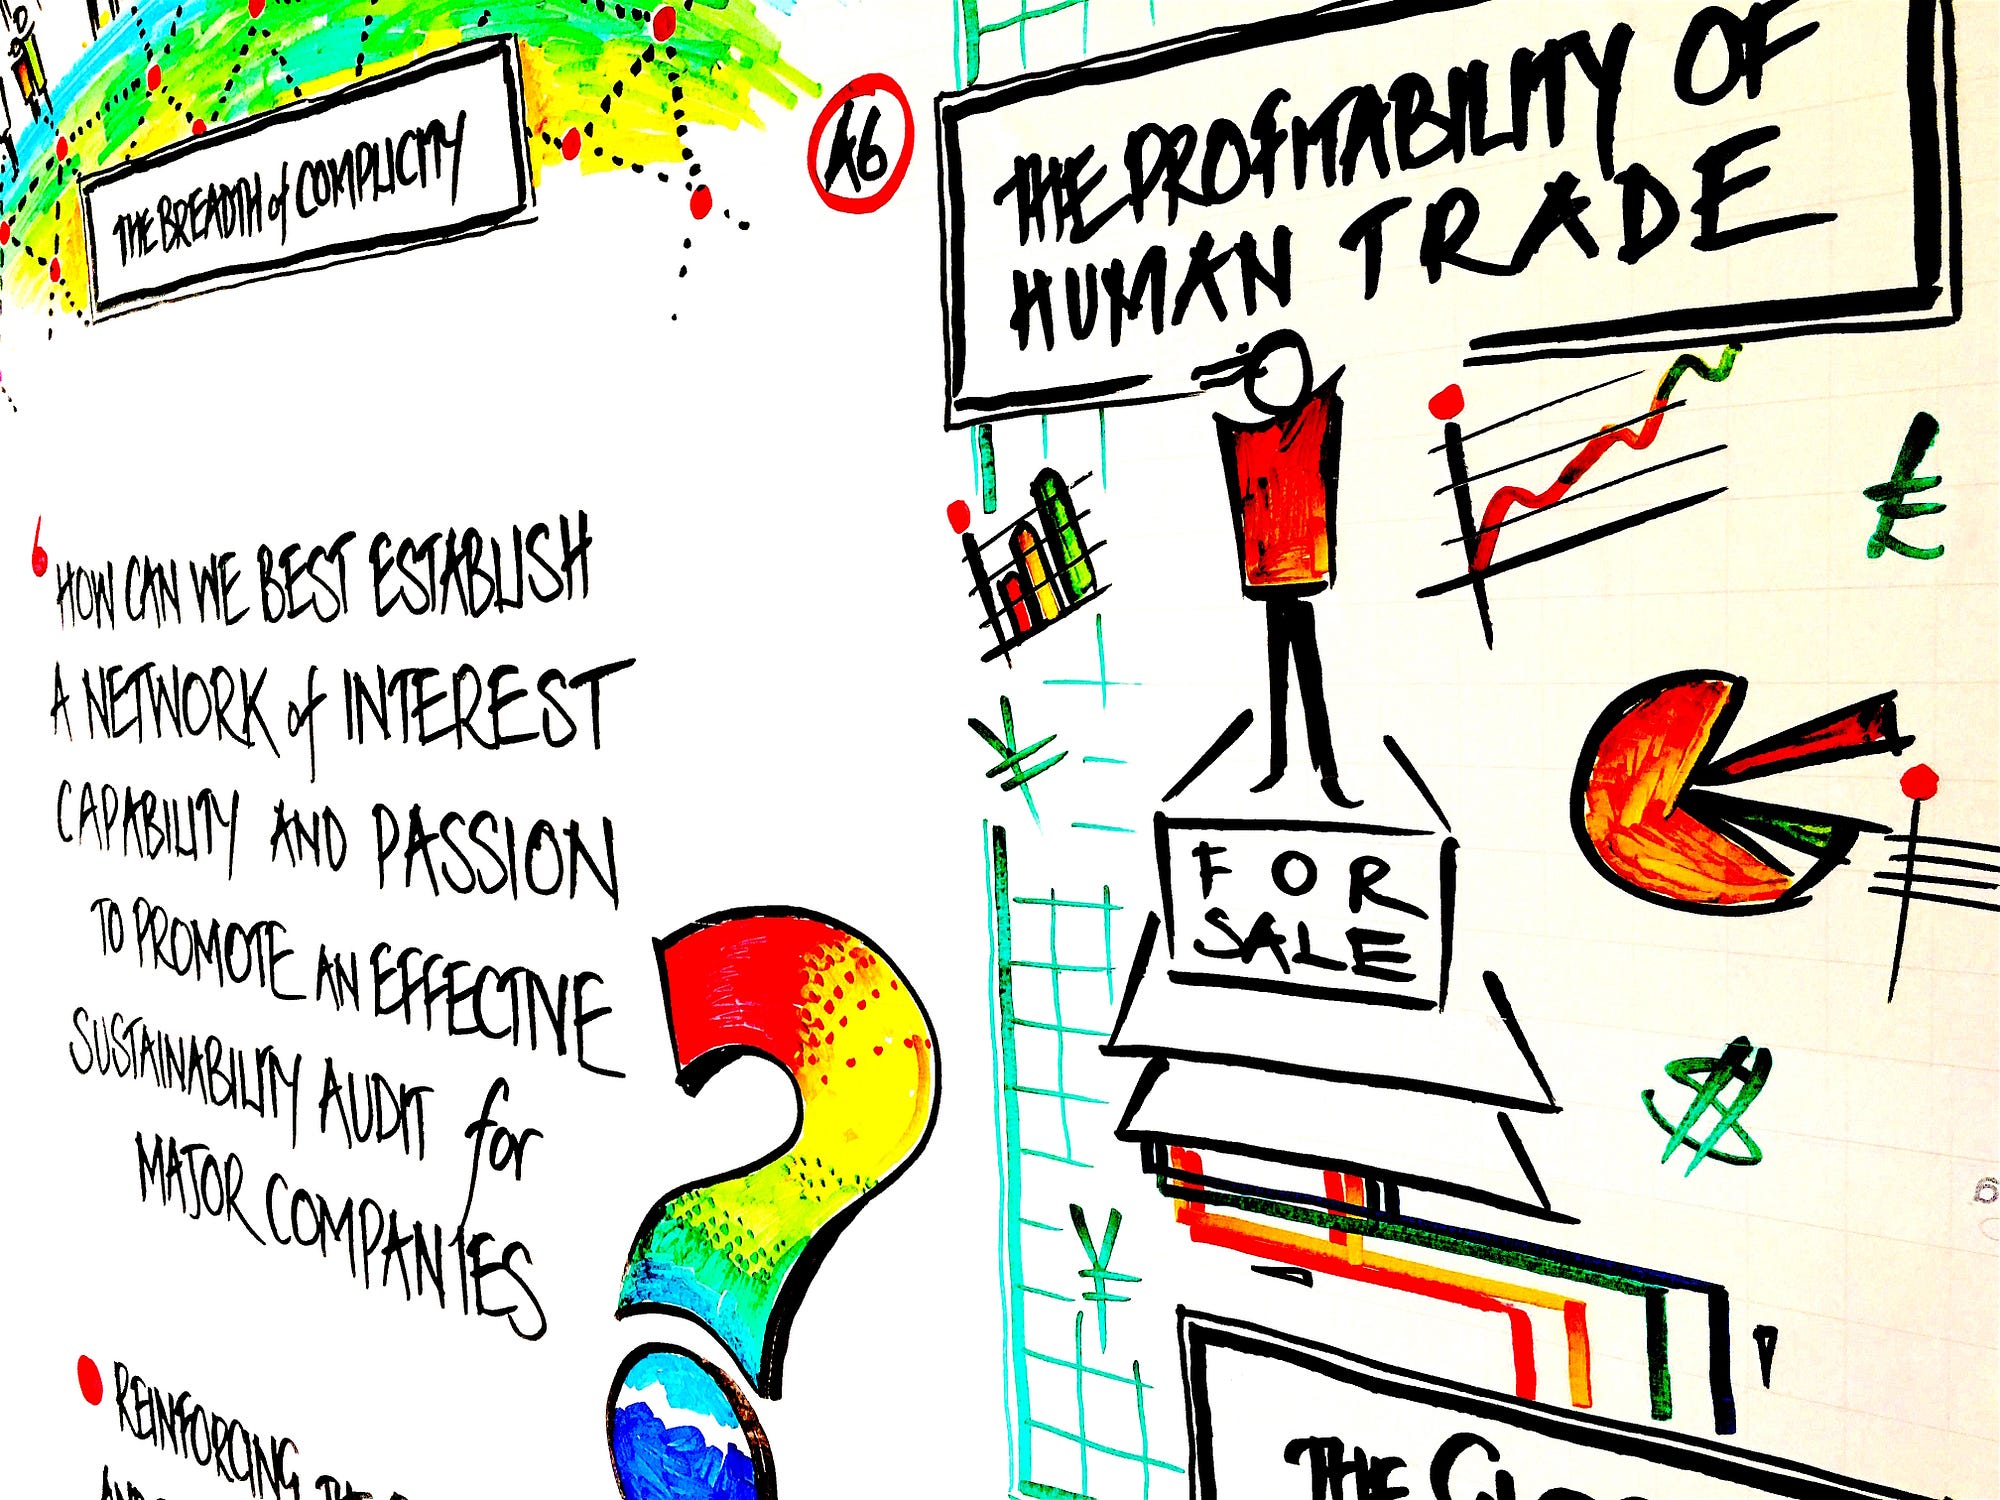 THE BREADTH of COMPLICITY
A6
THE PROFITABILITY OF
HUMAN TRADE
£
¥
FOR
SALE
$
¥
THE
'HOW CAN WE BEST ESTABLISH
A NETWORK of INTEREST
CAPABILITY AND PASSION
TO PROMOTE AN EFFECTIVE
SUSTAINABILITY AUDIT for
MAJOR COMPANIES
?
REINFORCING THE
AND